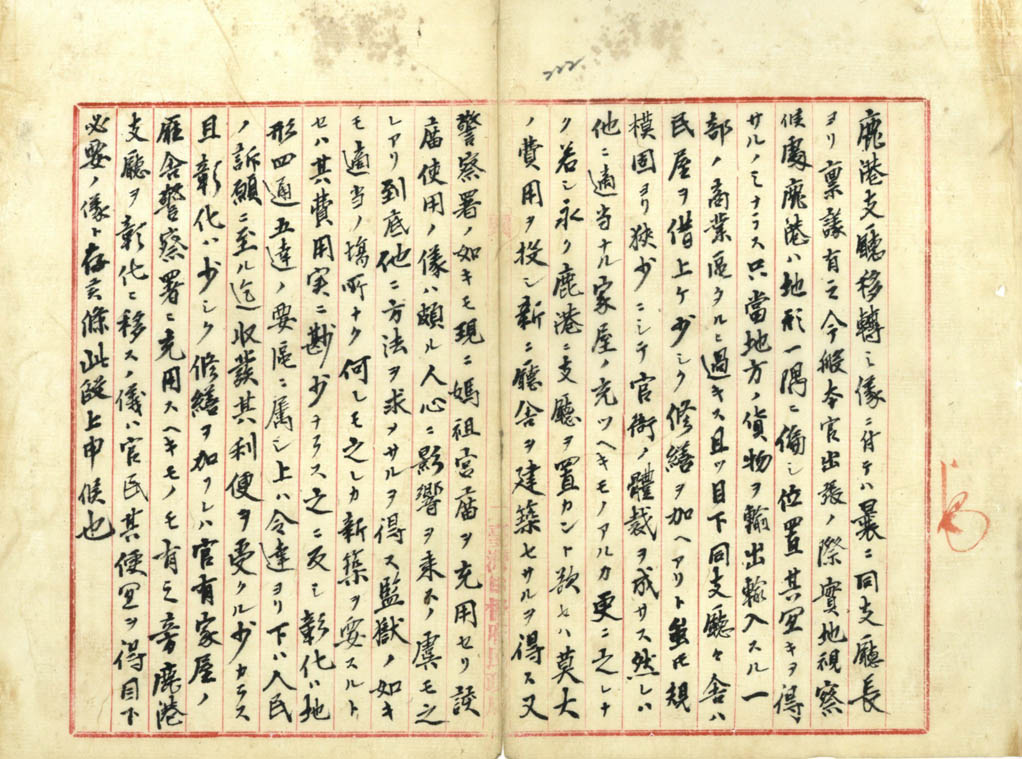 222
鹿港支廳移轉之儀ニ付テハ曩ニ同支廳長
ヨリ稟議有之今般本官出張ノ際實地視察
候處鹿港ハ地形一隅ニ偏シ位置其宜キヲ得
サルノミナラス只當地方ノ貨物ヲ輸出輸入スル一
部ノ商業區タルニ過キス且ツ目下同支廳々舍ハ
民屋ヲ借上ケ少シク修繕ヲ加ヘアリト雖モ規
模固ヨリ狹少ニシテ官衙ノ體裁ヲ成サス然レハ
他ニ適当ナル家屋ノ充ツヘキモノアルカ更ニ之レナ
ク若シ永ク鹿港ニ支廳ヲ置カント欲セハ莫大
ノ費用ヲ投シ新ニ廳舍ヲ建築セサルヲ得ス又
警察署ノ如キモ現ニ媽祖宮庙ヲ充用セリ該
庙使用ノ儀ハ頗ル人心ニ影響ヲ来スノ虞モ之
レアリ到底他ニ方法ヲ求メサルヲ得ス監獄ノ如キ
モ適当ノ場所ナク何レモ之レカ新築ヲ要スルト
セハ其費用実ニ尠少ナラス之ニ反シ彰化ハ地
形四通五達ノ要區ニ属シ上ハ令達ヨリ下ハ人民
ノ訴願ニ至ル迄收發其利便ヲ受クル少カラス
且彰化ハ少シク修繕ヲ加フレハ官有家屋ノ
廳舍警察署ニ充用スヘキモノモ有之旁鹿港
支廳ヲ彰化ニ移スノ儀ハ官民其便宜ヲ得目下
必要ノ儀ト存候條此段上申候也